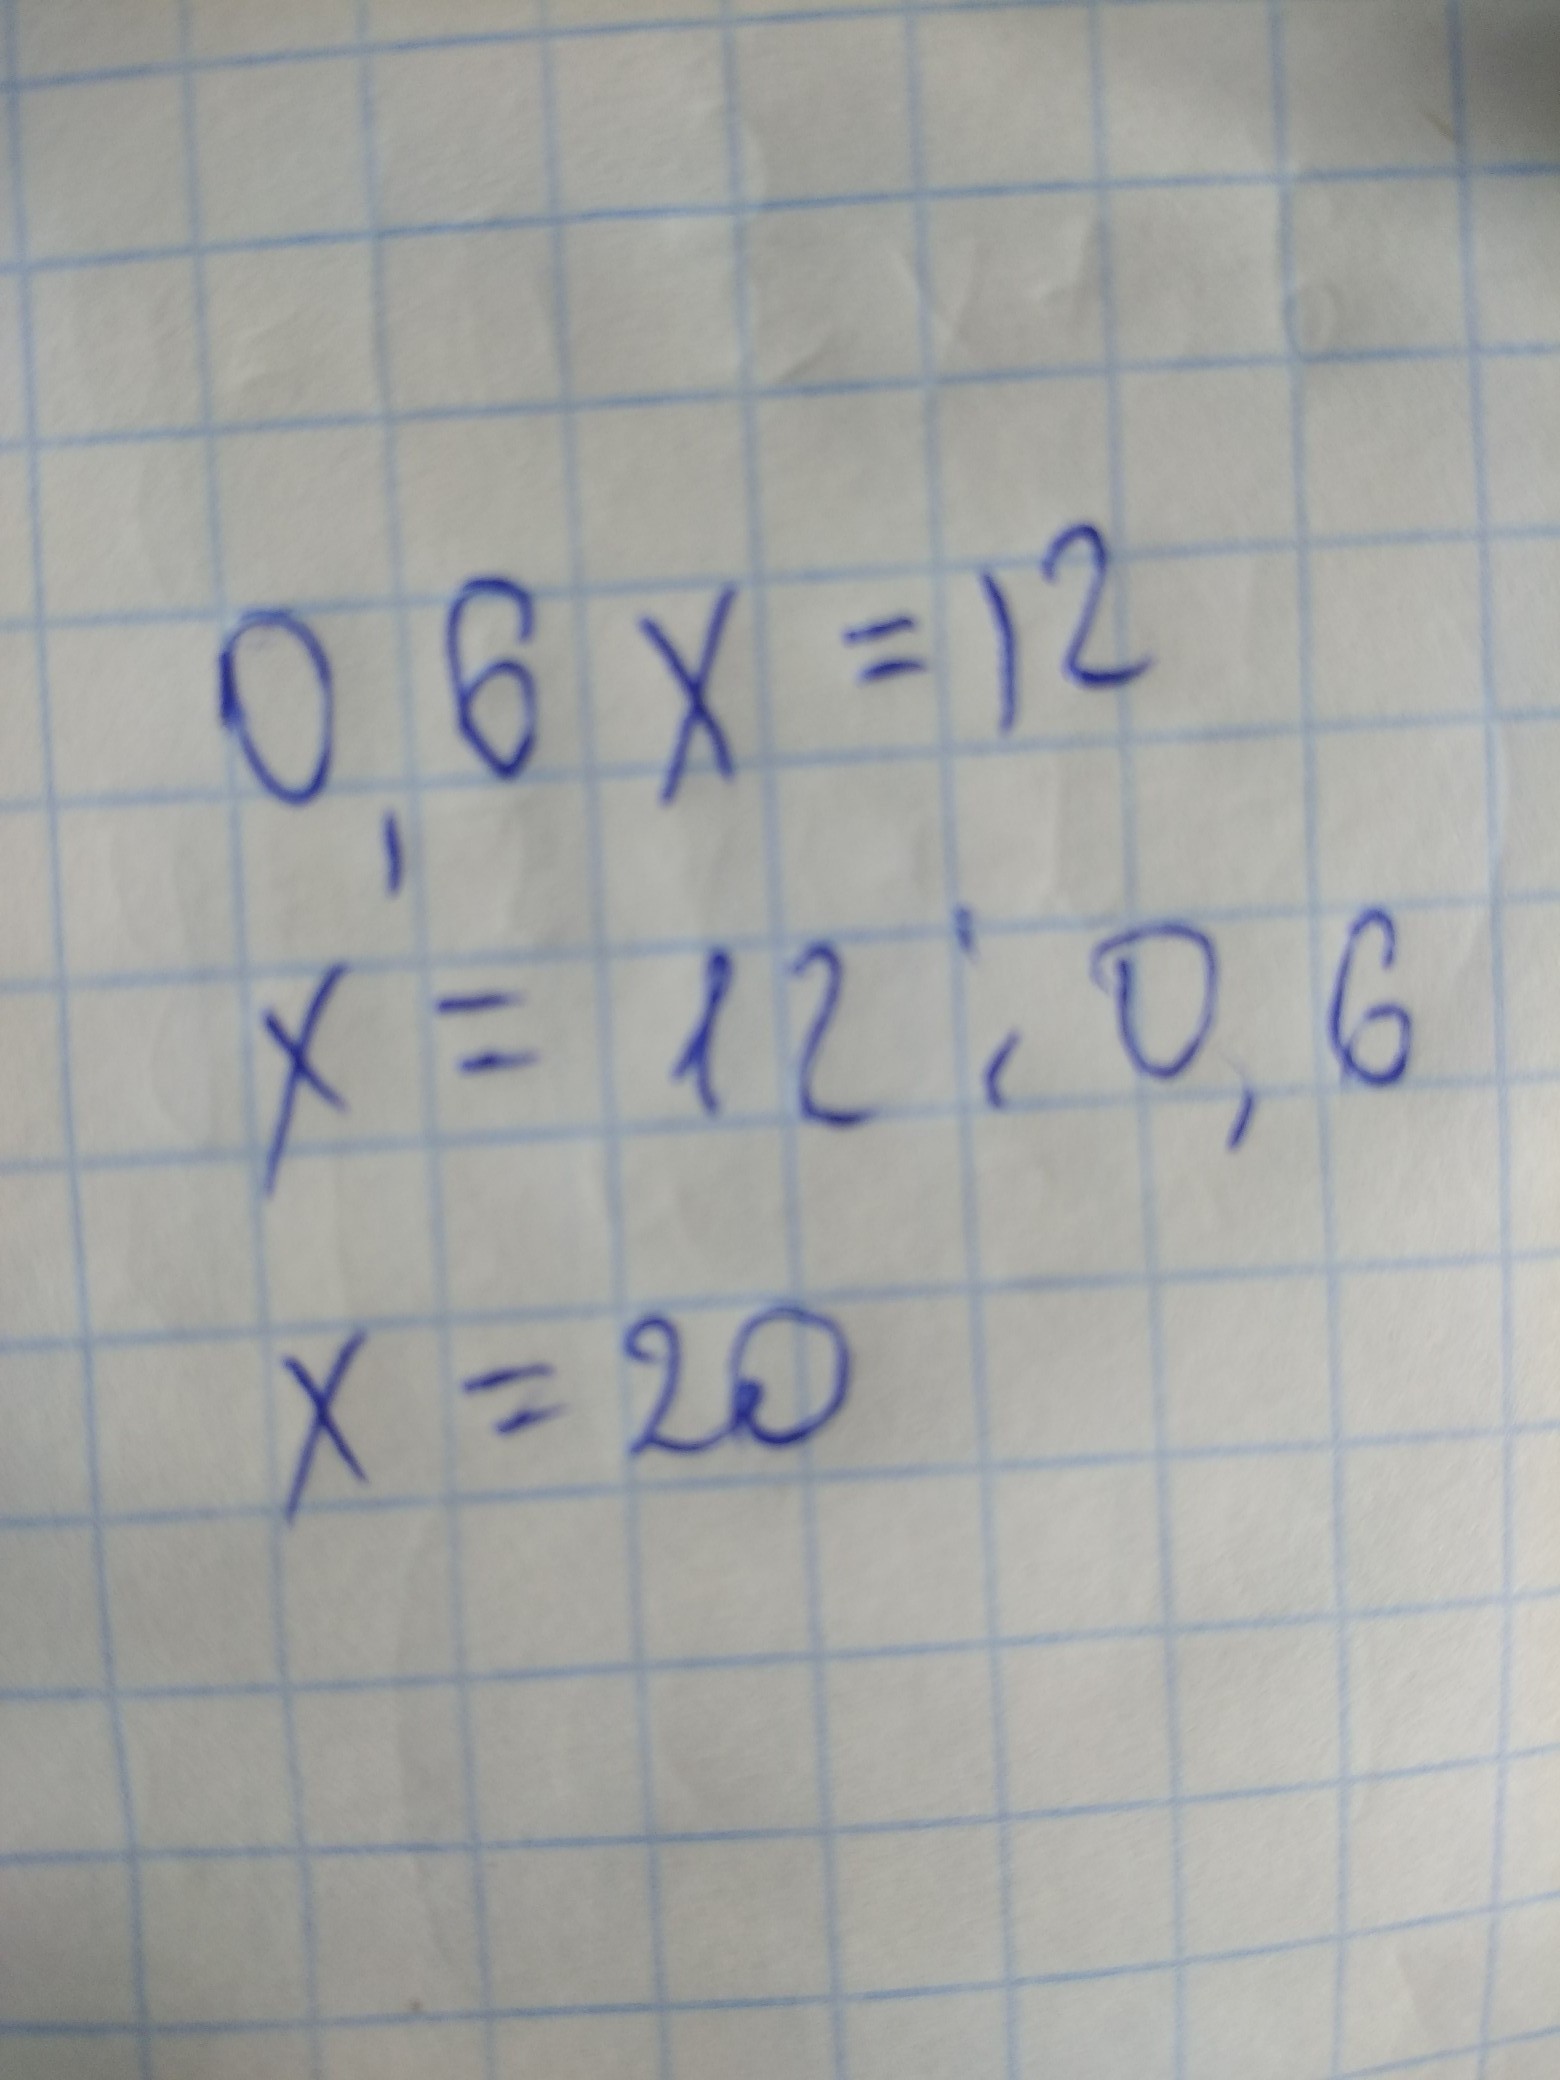 0,6x=12
x = 12 : 0,6
x = 20